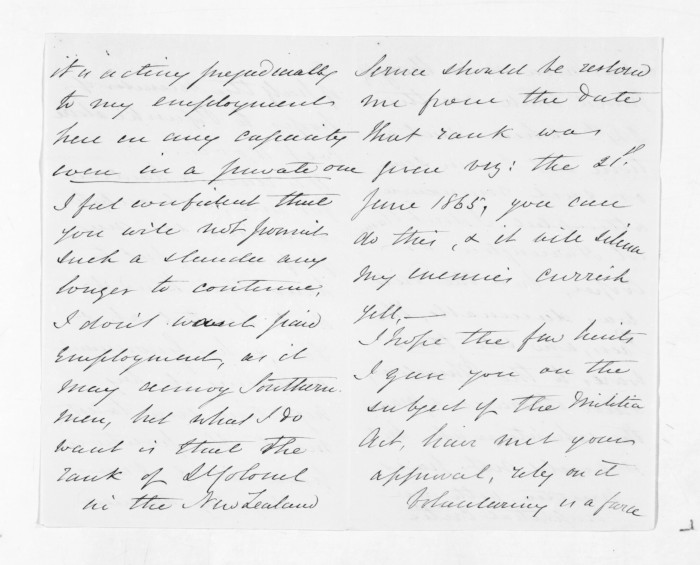 it is acting prejudicially
to my employment
here in any capacity
even in a private one
I feel confident that
you will not permit
such a slander any
longer to continue,
I don't want paid
Employment, as it
may annoy Southern
men, but what I do
want is that the
rank of Lt Colonel
in the New Zealand
Service should be restored
me from the date
that rank was
given viz: the 21st
June 1865, you can
do this, & it will silence
my enemies currish
yell,—
I hope the few hints
I gave you on the
subject of the Militia
Act, have met your
approval, rely on it
Volunteering is a farce